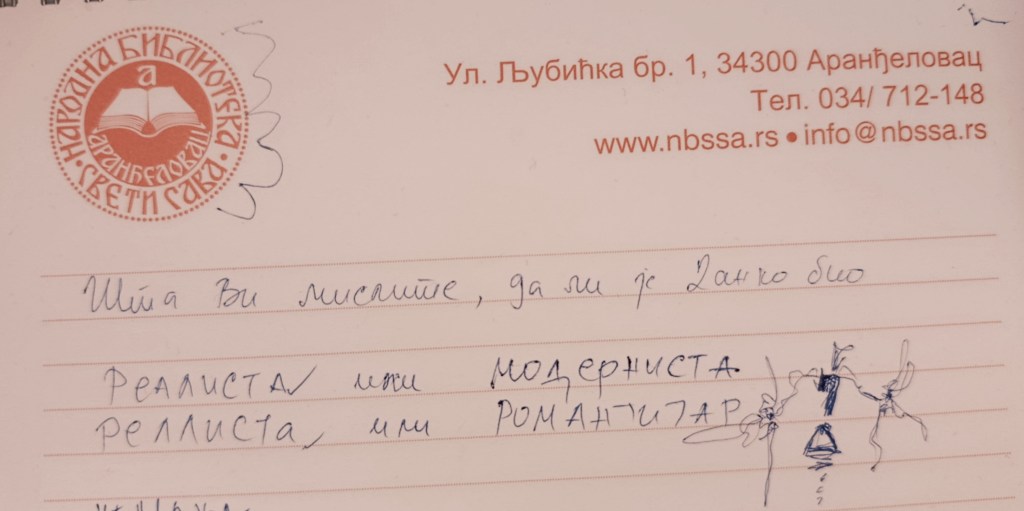 НАРОДНА БИБЛИОТЕКА
СВЕТИ САВА
а
АРАНЂЕЛОВАЦ
Ул. Љубићка бр. 1, 34300 Аранђеловац
Тел. 034/ 712-148
www.nbssa.rs • info@nbssa.rs
Шта Ви мислите, да ли је Ранко био
РЕАЛИСТА или МОДЕРНИСТА
РЕАЛИСТА, или РОМАНТИЧАР